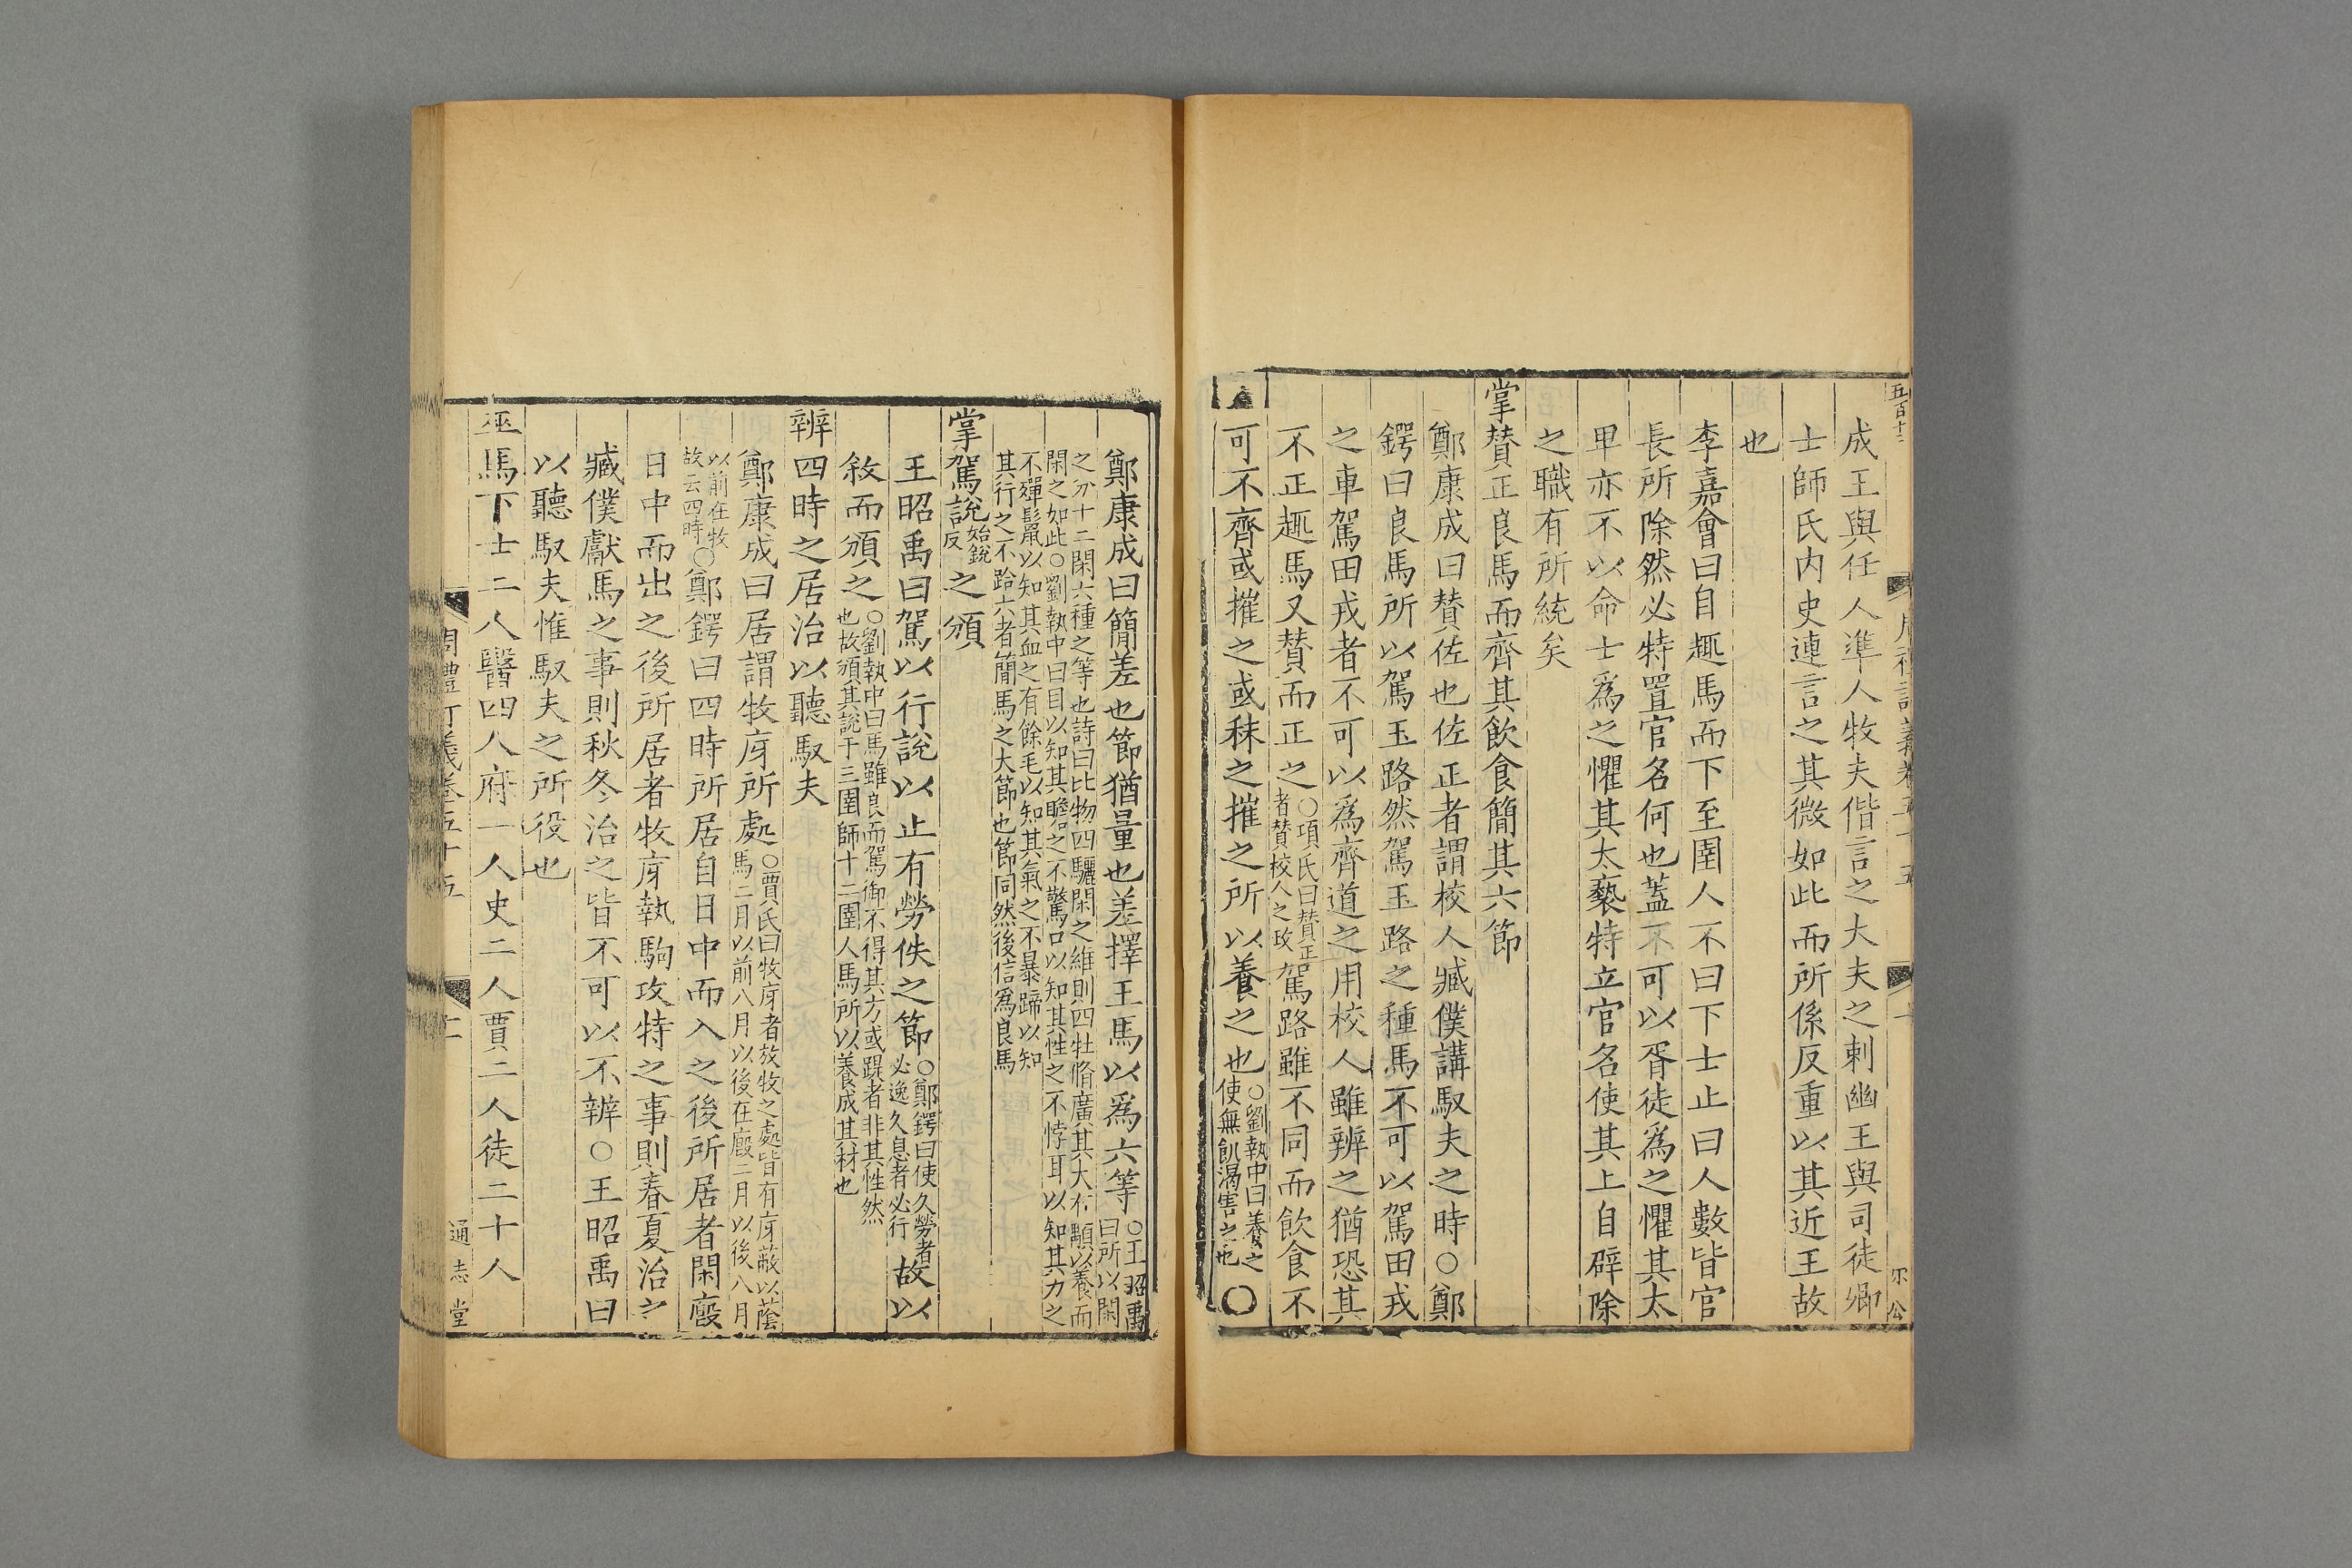 五百十二
成王與任人準人牧夫偕言之大夫之刺幽王與司徒卿
士師氏内史連言之其微如此而所係反重以其近王故
也
李嘉會曰自趣馬而下至圉人不曰下士止曰人數皆官
長所除然必特置官名何也蓋不可以胥徒爲之懼其太
卑亦不以命士爲之懼其太褻特立官名使其上自辟除
之職有所統矣
掌贊正良馬而齊其飲食簡其六節
鄭康成曰贊佐也佐正者謂校人臧僕講馭夫之時○鄭
鍔曰良馬所以駕玉路然駕玉路之種馬不可以駕田戎
之車駕田戎者不可以爲齊道之用校人雖辨之猶恐其
不正趣馬又贊而正之
○項氏曰贊正
者贊校人之政
駕路雖不同而飲食不
可不齊或摧之或秣之摧之所以養之也
○劉執中曰養之
使無飢渴害之也
○
鄭康成曰簡差也節猶量也差擇王馬以爲六等
○王昭禹
曰所以閑
之分十二閑六種之等也詩曰比物四驪閑之維則四牡脩廣其大有顒以養而
閑之如此○劉執中曰目以知其瞻之不驚口以知其性之不悖耳以知其力之
不殫鬛以知其血之有餘毛以知其氣之不暴蹄以知
其行之不跲六者簡馬之大節也節同然後信爲良馬
掌駕說
始銳
反
之頒
王昭禹曰駕以行說以止有勞佚之節
○鄭鍔曰使久勞者
必逸久息者必行
故以
敘而頒之
○劉執中曰馬雖良而駕御不得其方或踶者非其性然
也故頒其說于三圉師十二圉人馬所以養成其材也
辨四時之居治以聽馭夫
鄭康成曰居謂牧庌所處
○賈氏曰牧庌者放牧之處皆有庌蔽以蔭
馬二月以前八月以後在廄二月以後八月
以前在牧
故云四時
○鄭鍔曰四時所居自日中而入之後所居者閑廄
日中而出之後所居者牧庌執駒攻特之事則春夏治之
臧僕獻馬之事則秋冬治之皆不可以不辨○王昭禹曰
以聽馭夫惟馭夫之所役也
巫馬下士二人醫四人府一人史二人賈二人徒二十人
周禮訂義卷五十五
通志堂